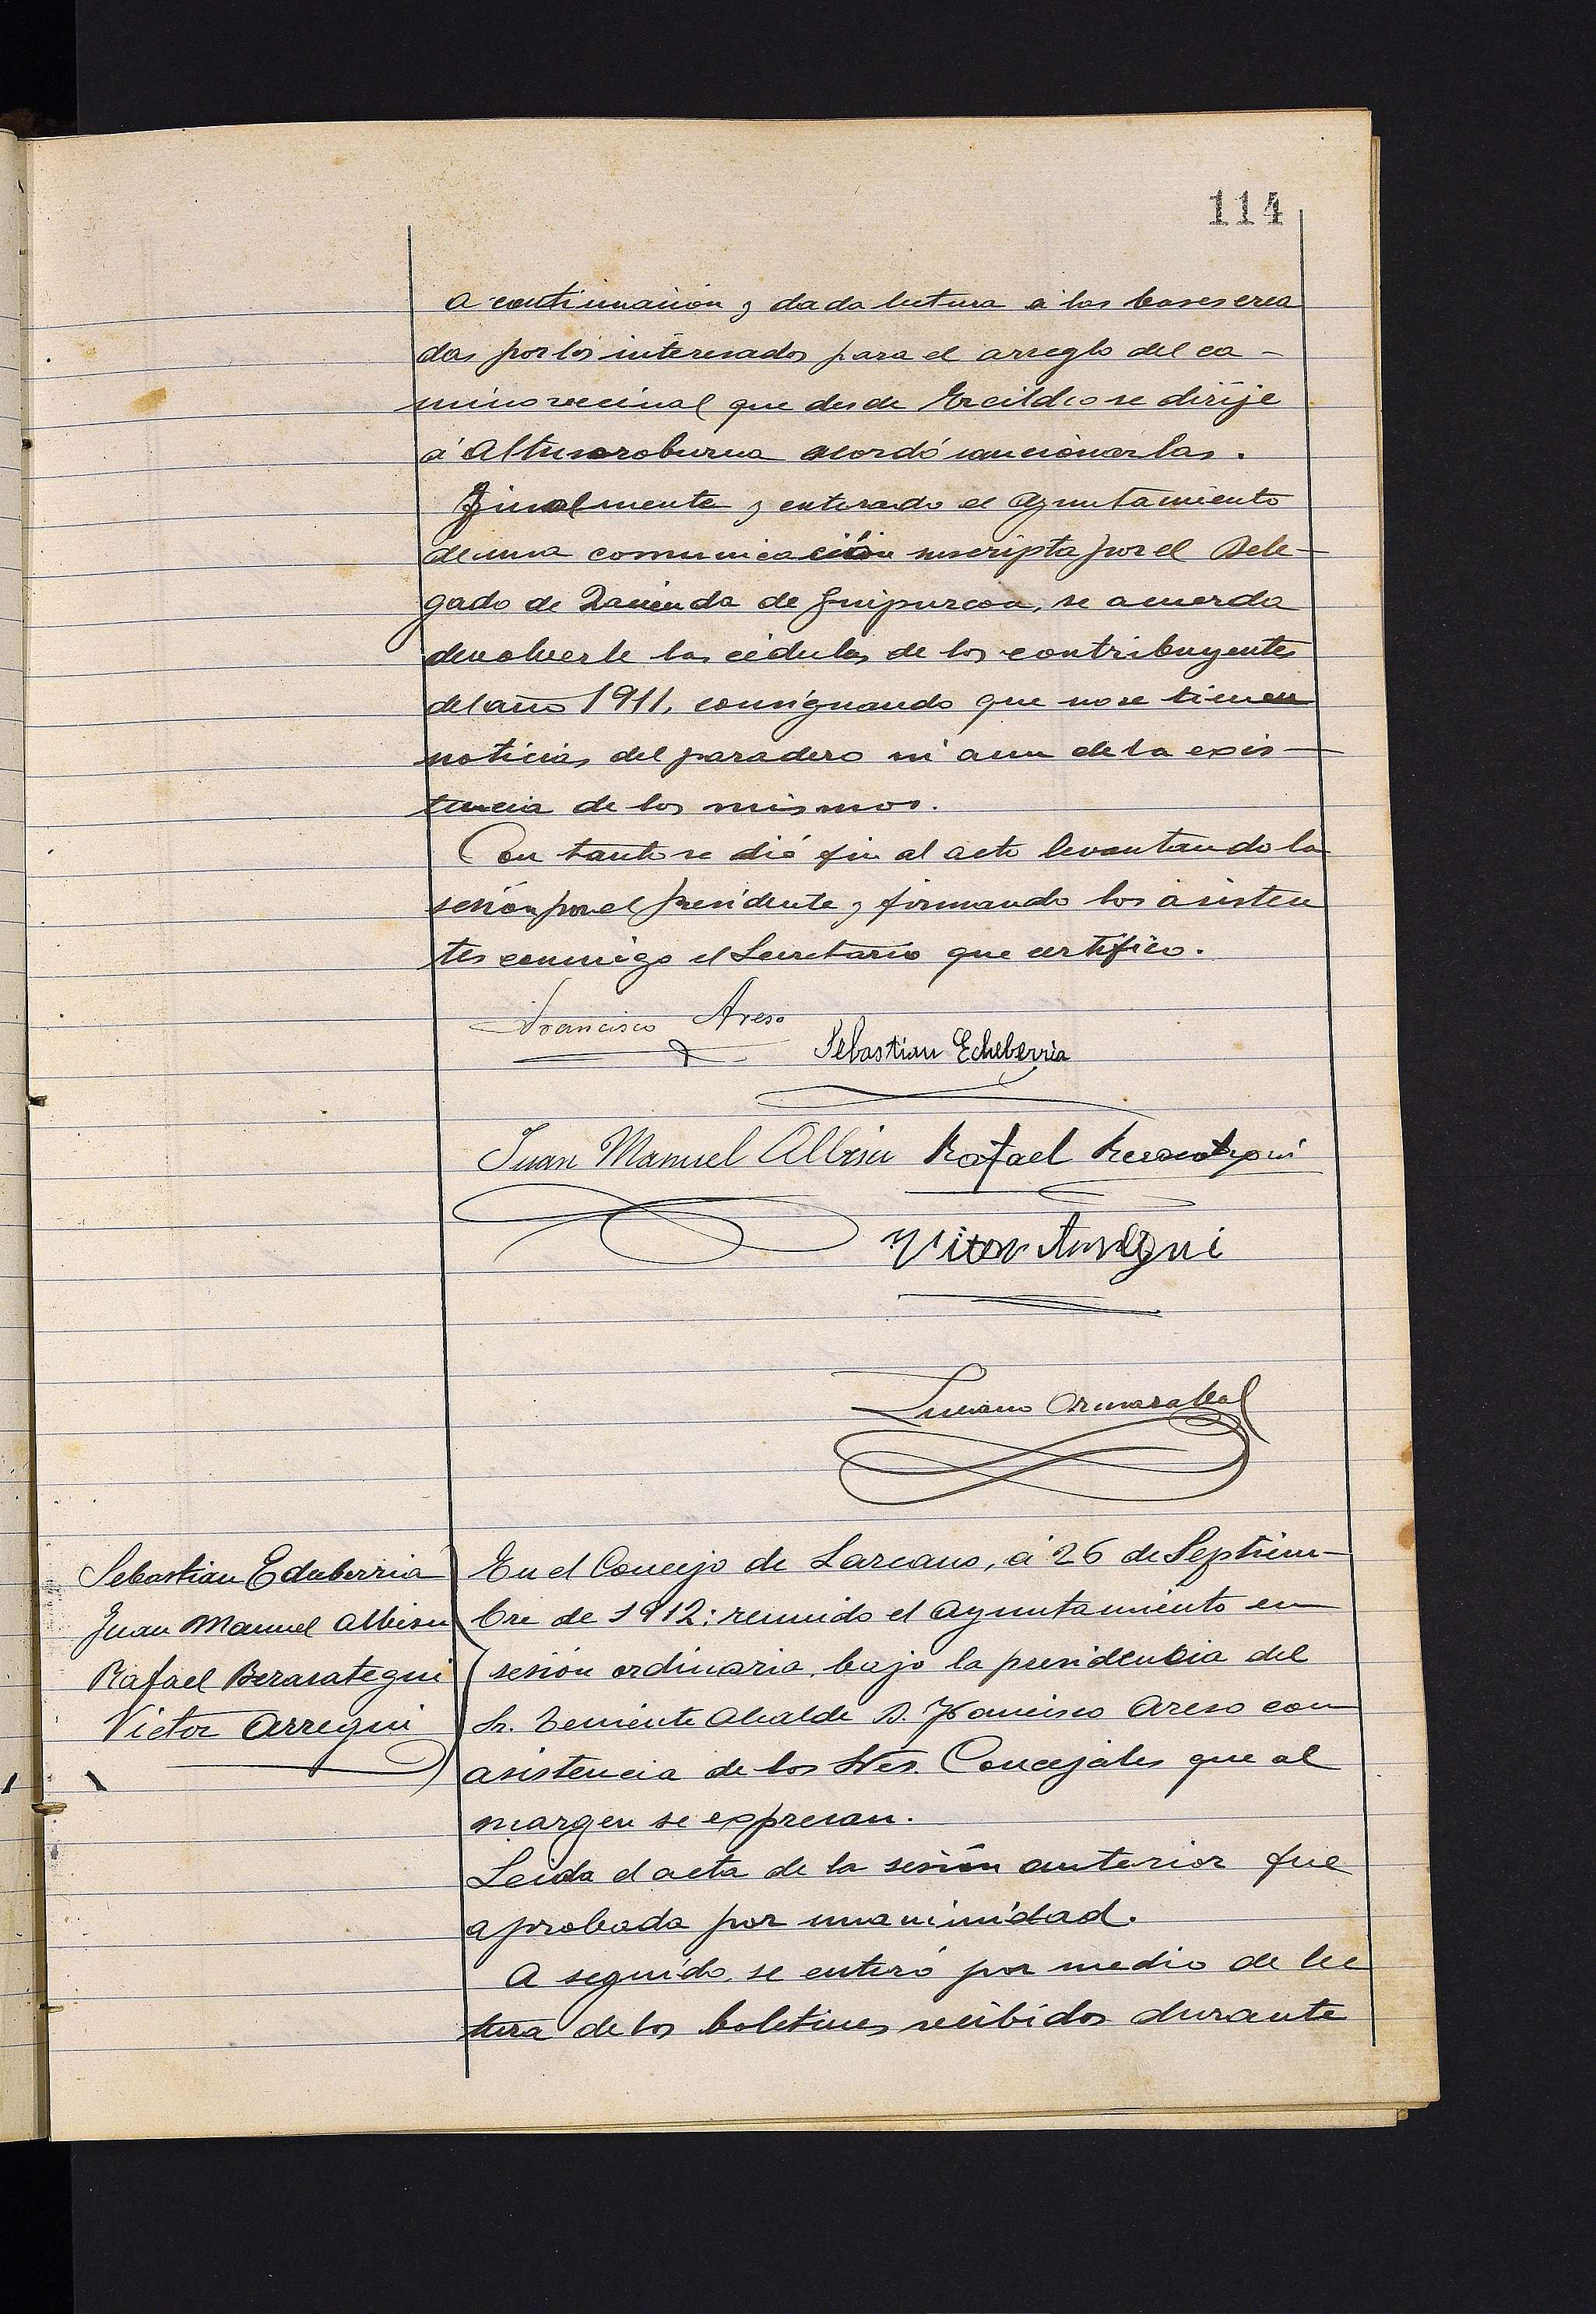 114
A continuación y dada lectura á las bases crea
das por los interesados para el arreglo del ca-
mino vecinal que desde Ercildio se dirije
á Altusoroburua acordó sancionarlas.
Finalmente y enterado el Ayuntamiento
de una comunicación suscripta por el Dele-
gado de Hacienda de Guipuzcoa, se acuerda
devolverle las cédulas de los contribuyentes
del año 1911, consignando que no se tienen
noticias del paradero ni aun de la exis-
tencia de los mismos.
Con tanto se dió fin al acto levantando la
sesión por el presidente y firmando los asisten
tes conmigo el Secretario que certifico.
Francisco Areso
Sebastian Echeberria
Juan Manuel Albisu Rafael Berasategui
Victor Arregui
Luciano Ormazabal
Sebastian Echeberria
Juan Manuel Albisu
Rafael Berasategui
Victor Arregui
En el Concejo de Lazcano, á 26 de Septiem-
bre de 1912: reunido el Ayuntamiento en
sesión ordinaria, bajo la presidencia del
Sr. Teniente Alcalde D. Francisco Areso con
asistencia de los Sres. Concejales que al
margen se expresan.
Leida el acta de la sesión anterior fue
aprobada por unanimidad.
A seguido, se enteró por medio de lec
tura de los boletines recibidos durante